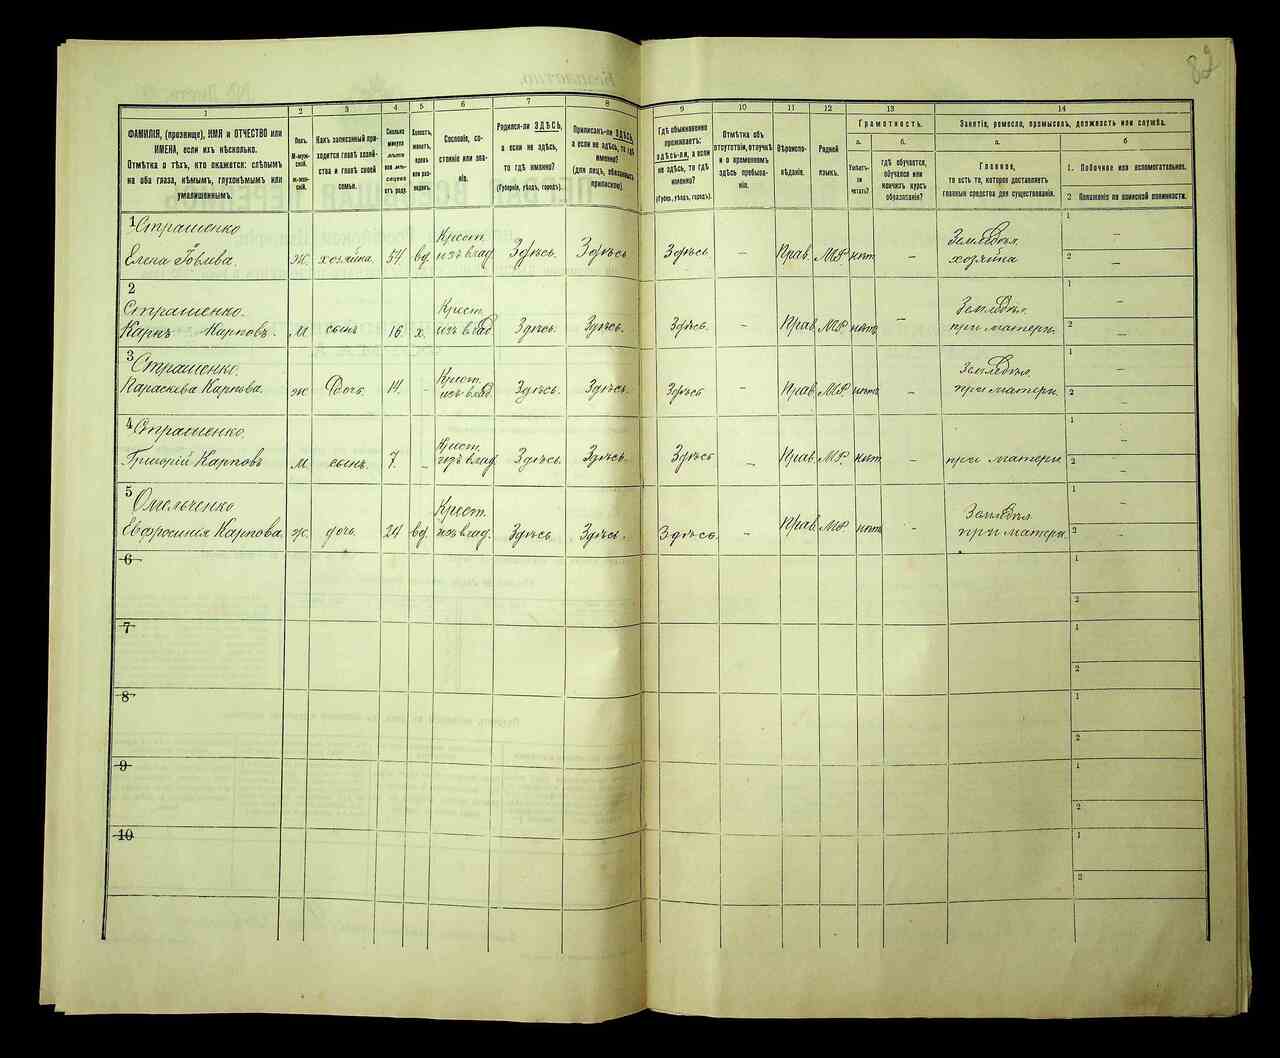 82
1
2
3
4
5
6
7
8
9
10
11
12
13
14
ФАМИЛІЯ, (прозвище), ИМЯ и ОТЧЕСТВО или
ИМЕНА, если ихъ нѣсколько.
Отмѣтка о тѣхъ, кто окажется: слѣпымъ
на оба глаза, нѣмымъ, глухонѣмымъ или
умалишеннымъ.
Полъ.
М-муж-
ской.
ж-жен-
скій.
Какъ записанный при-
ходится главѣ хозяй-
ства и главѣ своей
семьи.
Сколько
минуло
лѣтъ
или мѣ-
сяцевъ
отъ роду.
Холостъ,
женатъ,
вдовъ
или раз-
веденъ.
Сословіе, со-
стояніе или зва-
ніе.
Родился-ли ЗДѢСЬ,
а если не здѣсь,
то гдѣ именно?
(Губернія, уѣздъ, городъ).
Приписанъ-ли ЗДѢСЬ,
а если не здѣсь, то гдѣ
именно?
(для лицъ, обязанныхъ
припискою).
Гдѣ обыкновенно
проживаетъ:
здѣсь-ли, а если
не здѣсь, то гдѣ
именно?
(Губер., уѣздъ, городъ).
Отмѣтка объ
отсутствіи, отлучкѣ
и о временномъ
здѣсь пребыва-
ніи.
Вѣроиспо-
вѣданіе.
Родной
языкъ.
Грамотность.
а.
б.
Умѣетъ-
ли
читать?
гдѣ обучается,
обучался или
кончилъ курсъ
образованія?
Занятіе, ремесло, промыселъ, должность или служба.
а.
б
Главное,
то есть то, которое доставляетъ
главныя средства для существованія.
1. Побочное или вспомогательное.
2 Положеніе по воинской повинности.
1 Страшенко
Елена
ж. хозяйка. 54 вд. Крест. изъ влад. Здѣсь. Здѣсь Здѣсь – Прав. МР. нѣт – Земледѣл. хозяйка
1 –
2 –
2
Страшенко.
Карпъ Карповъ. М сынъ 16. х. Крест. изъ влад Здѣсь. Здѣсь. Здѣсь. – Прав. МР нѣт – Земледѣл. при матери.
1 –
2 –
3 Страшенко.
Параскева Карпова. ж Дочь 14. – Крест. изъ влад. Здѣсь. Здѣсь. Здѣсь – Прав. МР. нѣт – Земледѣл. при матери.
1 –
2 –
4 Страшенко.
Григорій Карповъ М. сынъ. 7. – Крест. изъ влад. Здѣсь. Здѣсь. Здѣсь – Прав. МР. нѣт. – при матери
1 –
2 –
5 Омельченко
Евфросинія Карпова. ж. дочь. 24 вд. Крест. изъ влад. Здѣсь. Здѣсь. Здѣсь. – Прав. МР нѣт – Земледѣл. при матери
1 –
2 –
6
1
2
7
1
2
8
1
2
9
1
2
10
1
2